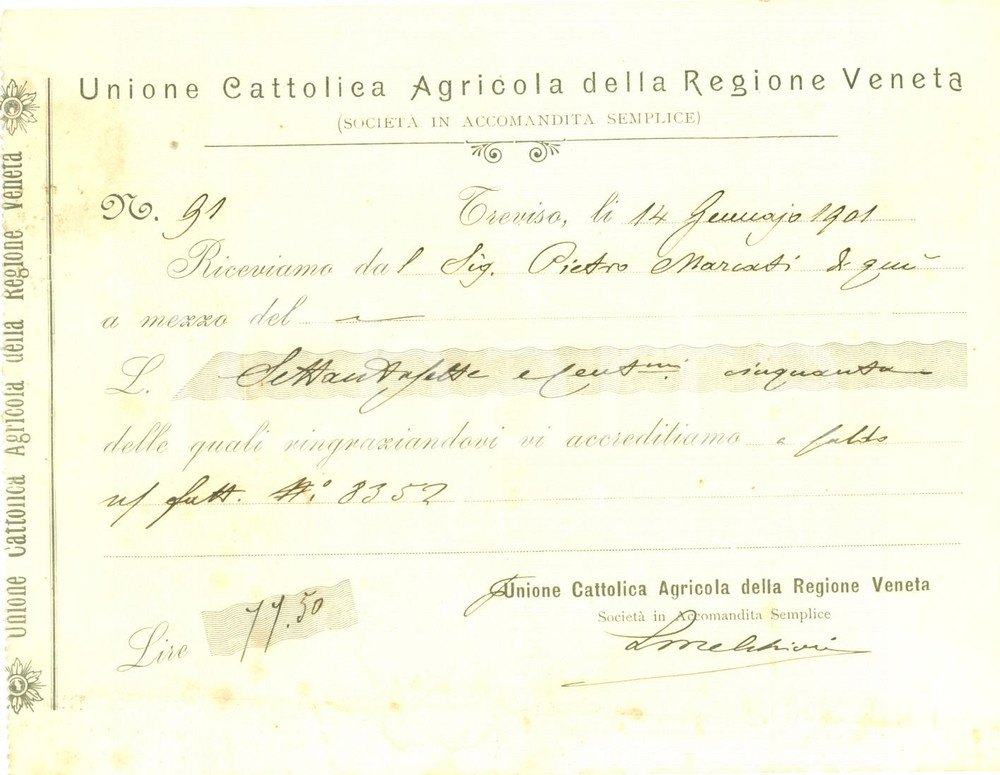 Unione Cattolica Agricola della Regione Veneta
Unione Cattolica Agricola della Regione Veneta
(SOCIETÀ IN ACCOMANDITA SEMPLICE)
N. 91 Treviso, li 14 Gennajo 1901
Riceviamo dal Sig. Pietro Marcati di qui
a mezzo del
L. Settantasette e Centmi cinquanta
delle quali ringraziandovi vi accreditiamo a saldo
n/ fatt. N.° 8352
Unione Cattolica Agricola della Regione Veneta
Società in Accomandita Semplice
Lire 77.50